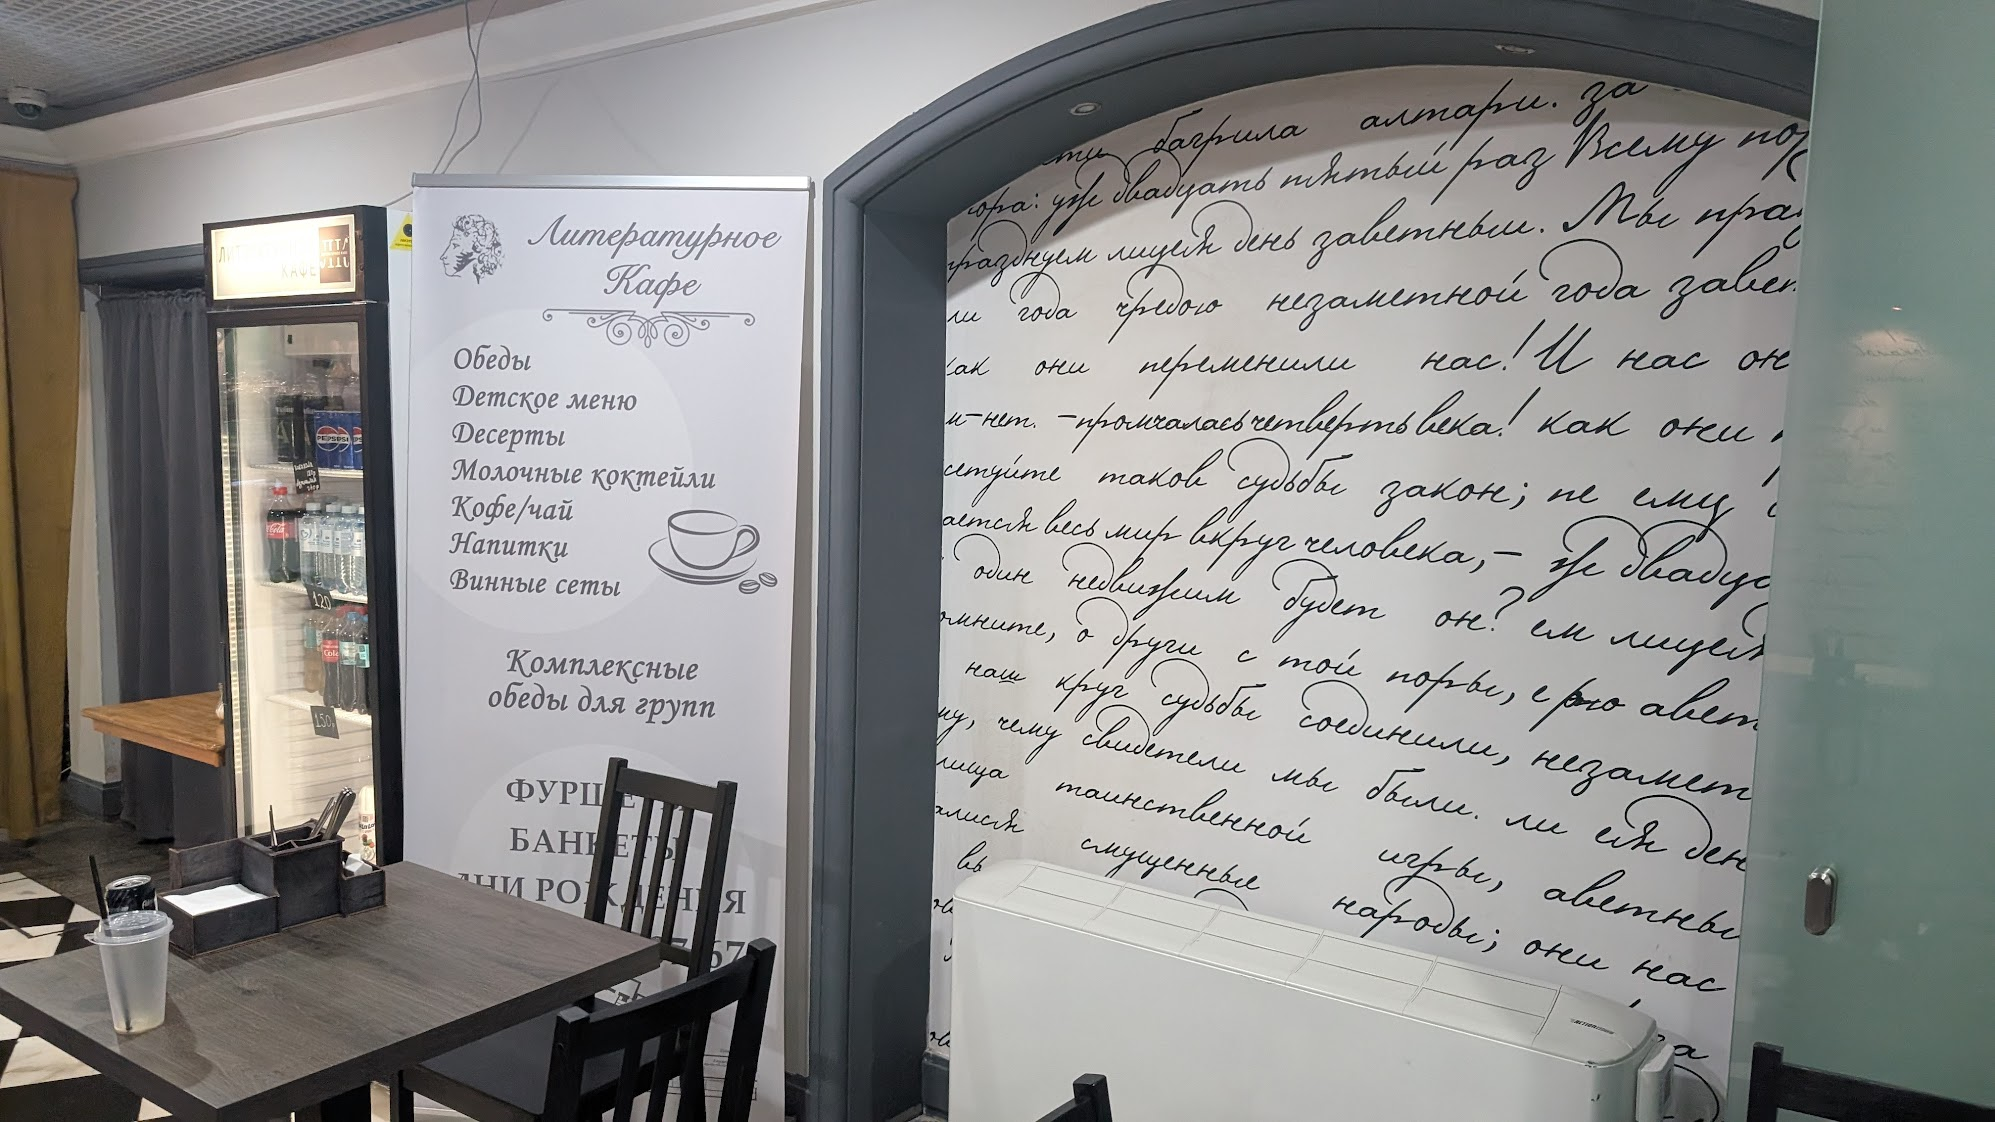 Литературное
Кафе
Обеды
Детское меню
Десерты
Молочные коктейли
Кофе/чай
Напитки
Винные сеты
Комплексные
обеды для групп
БАНКЕТЫ
ДНИ РОЖДЕНИЯ
67
КАФЕ
PEPSI
Cola
120
150р
багрила алтари. за
уж двадцать пятый раз Всему
празднуем лицея день заветный. Мы
ли года чредою незаметной года
как они переменили нас! И нас он
м-нет. - промчалась четверть века! как они
сетуйте таков судьбы закон; не ему
ается весь мир вкруг человека, -
один недвижим будет он? ем лицея
омните, о други с той поры, с
наш круг судьбы соединили, незамет
му, чему свидетели мы были. ли ся ден
лища таинственной игры, аветны
ались смущенные народы; они нас